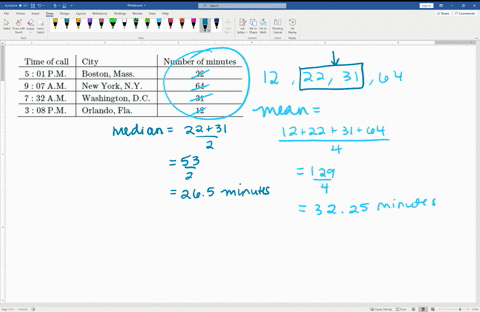 Time of call City Number of minutes
5 : 01 P.M. Boston, Mass. 22
9 : 07 A.M. New York, N.Y. 64
7 : 32 A.M. Washington, D.C. 31
3 : 08 P.M. Orlando, Fla. 12
12 , 22, 31 , 64
mean =
12+22+31+64
4
= 129
4
= 32.25 minutes
median = 22+31
2
= 53
2
= 26.5 minutes